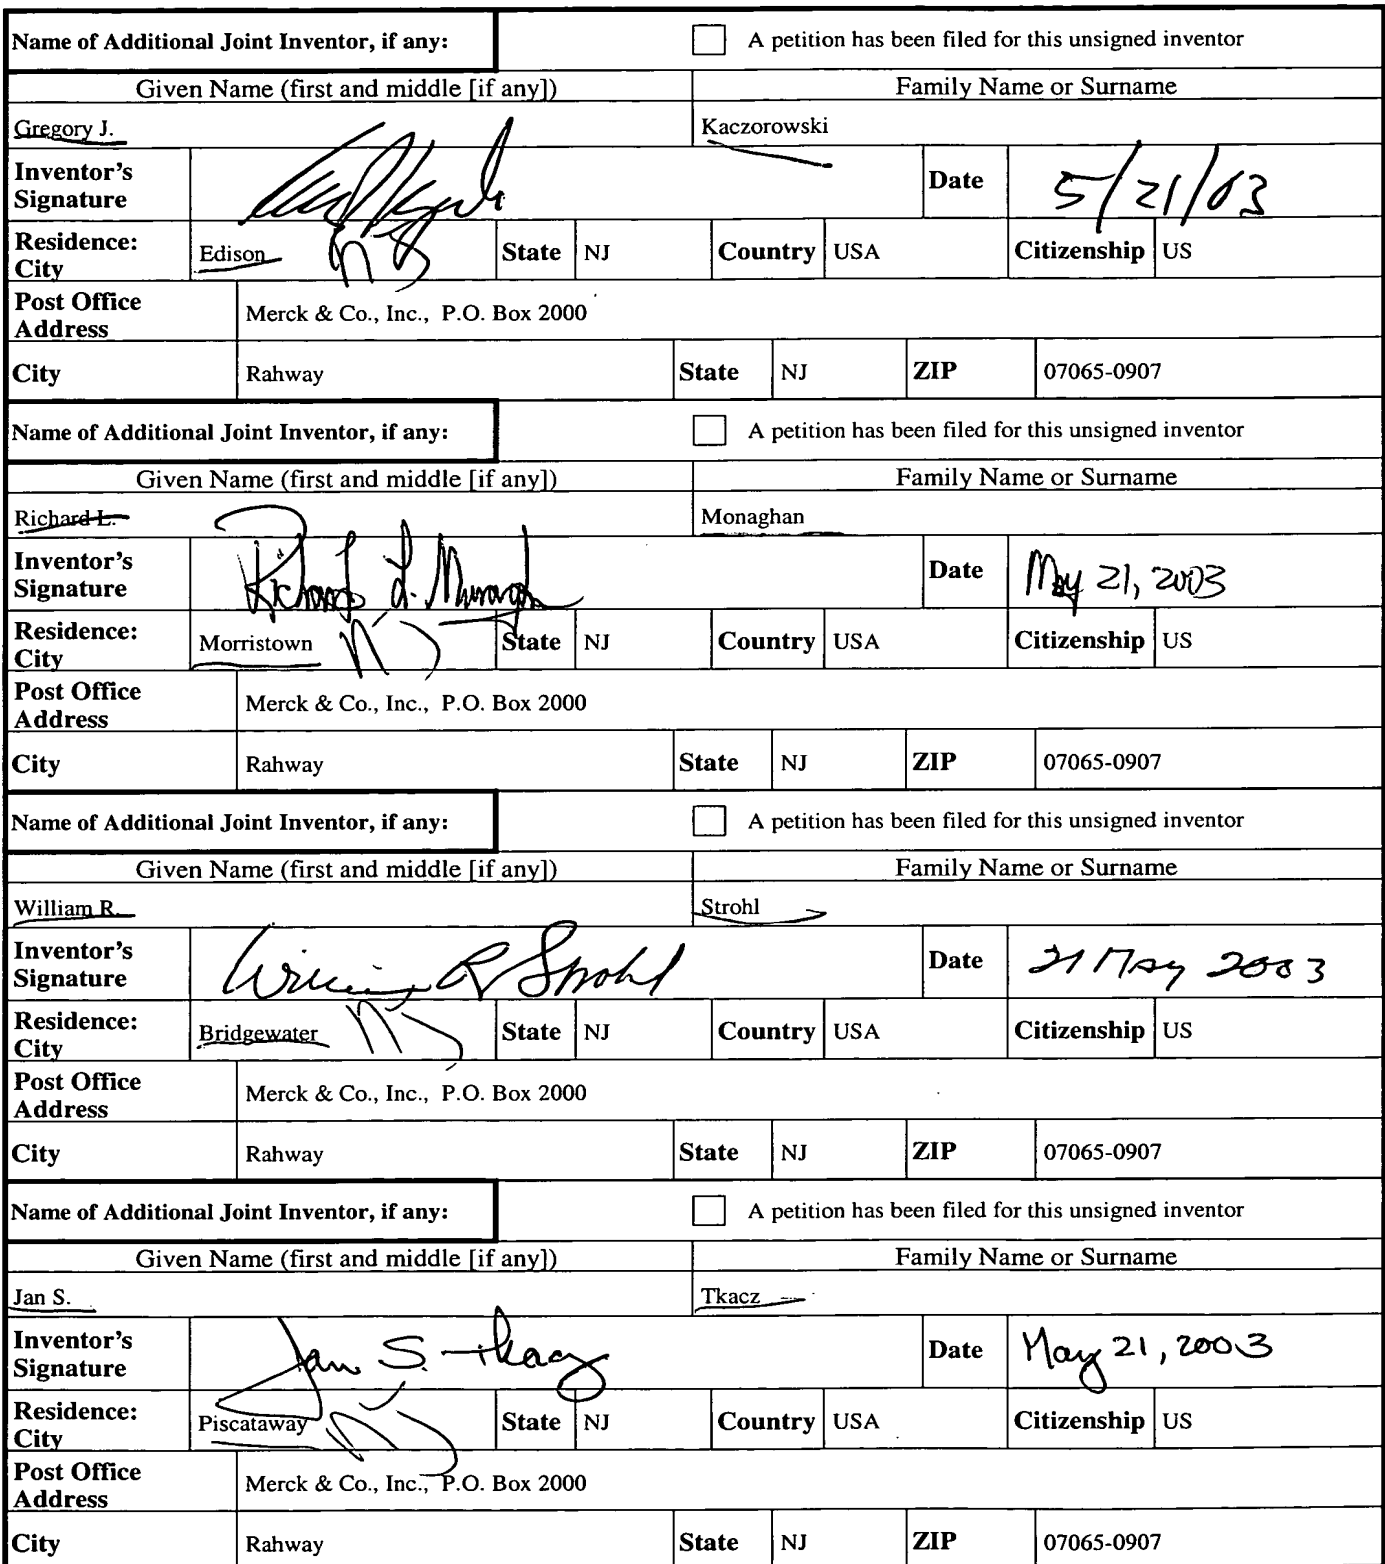 Name of Additional Joint Inventor, if any: A petition has been filed for this unsigned inventor
Given Name (first and middle [if any]) Family Name or Surname
Gregory J. Kaczorowski
Inventor's Signature Date 5/21/03
NJ
Residence: City Edison State NJ Country USA Citizenship US
Post Office Address Merck & Co., Inc., P.O. Box 2000
City Rahway State NJ ZIP 07065-0907
Name of Additional Joint Inventor, if any: A petition has been filed for this unsigned inventor
Given Name (first and middle [if any]) Family Name or Surname
Richard L. Monaghan
Inventor's Signature Richard L. Monaghan Date May 21, 2003
NJ
Residence: City Morristown State NJ Country USA Citizenship US
Post Office Address Merck & Co., Inc., P.O. Box 2000
City Rahway State NJ ZIP 07065-0907
Name of Additional Joint Inventor, if any: A petition has been filed for this unsigned inventor
Given Name (first and middle [if any]) Family Name or Surname
William R. Strohl
Inventor's Signature William R Strohl Date 21 May 2003
NJ
Residence: City Bridgewater State NJ Country USA Citizenship US
Post Office Address Merck & Co., Inc., P.O. Box 2000
City Rahway State NJ ZIP 07065-0907
Name of Additional Joint Inventor, if any: A petition has been filed for this unsigned inventor
Given Name (first and middle [if any]) Family Name or Surname
Jan S. Tkacz
Inventor's Signature Jan S. Tkacz Date May 21, 2003
NJ
Residence: City Piscataway State NJ Country USA Citizenship US
Post Office Address Merck & Co., Inc., P.O. Box 2000
City Rahway State NJ ZIP 07065-0907